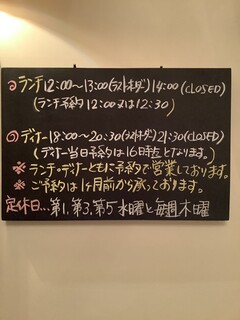 ◎ランチ 12:00～13:00(ラストオーダー)14:00(CLOSED)
(ランチ予約 12:00又は12:30)
◎ディナー 18:00～20:30(ラストオーダー)21:30(CLOSED)
(ディナー当日予約は16時迄となります。)
※ランチ・ディナーともに予約制で営業しております。
※ご予約は1ヶ月前から承っております。
定休日…第1.第3.第5水曜と毎週木曜